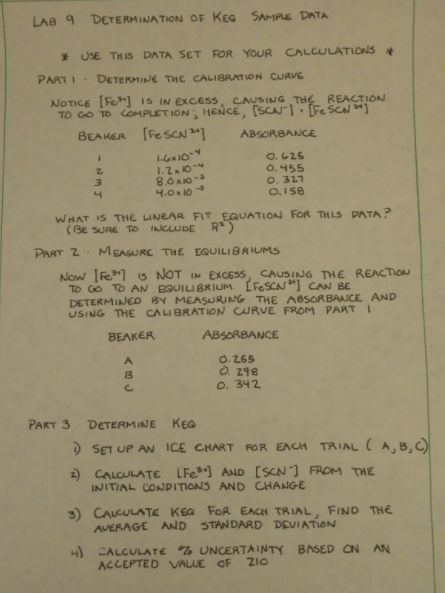 LAB 9 DETERMINATION OF KEQ SAMPLE DATA
* USE THIS DATA SET FOR YOUR CALCULATIONS *
PART 1 - DETERMINE THE CALIBRATION CURVE
NOTICE [Fe³⁺] IS IN EXCESS, CAUSING THE REACTION
TO GO TO COMPLETION; HENCE, [SCN⁻] = [FeSCN²⁺]
BEAKER [FeSCN²⁺] ABSORBANCE
1 1.6x10⁻⁴ 0.625
2 1.2x10⁻⁴ 0.455
3 8.0x10⁻⁵ 0.327
4 4.0x10⁻⁵ 0.158
WHAT IS THE LINEAR FIT EQUATION FOR THIS DATA?
(BE SURE TO INCLUDE R²)
PART 2 - MEASURE THE EQUILIBRIUMS
NOW [Fe³⁺] IS NOT IN EXCESS, CAUSING THE REACTION
TO GO TO AN EQUILIBRIUM. [FeSCN²⁺] CAN BE
DETERMINED BY MEASURING THE ABSORBANCE AND
USING THE CALIBRATION CURVE FROM PART 1
BEAKER ABSORBANCE
A 0.255
B 0.298
C 0.342
PART 3 DETERMINE KEQ
1) SET UP AN ICE CHART FOR EACH TRIAL (A,B,C)
2) CALCULATE [Fe³⁺] AND [SCN⁻] FROM THE
INITIAL CONDITIONS AND CHANGE
3) CALCULATE KEQ FOR EACH TRIAL, FIND THE
AVERAGE AND STANDARD DEVIATION
4) CALCULATE % UNCERTAINTY BASED ON AN
ACCEPTED VALUE OF 210